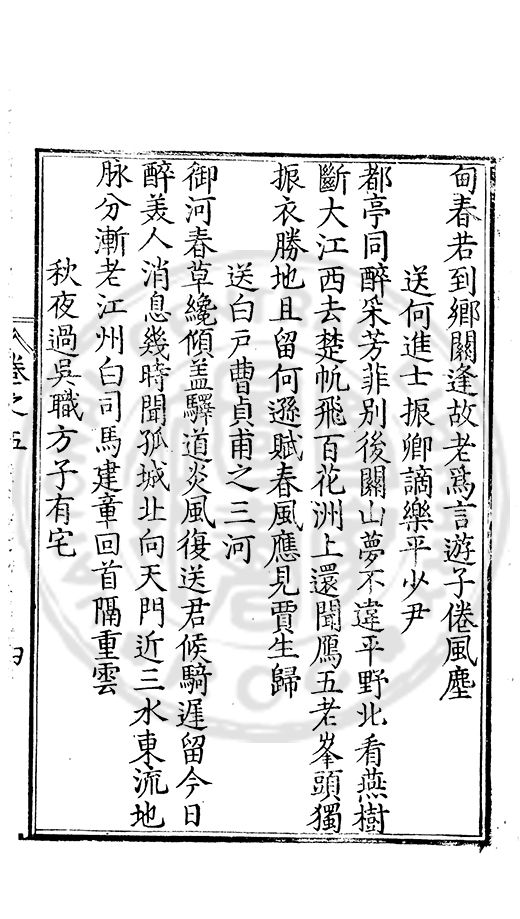 甸春若到鄉關逢故老爲言遊子倦風塵
送何進士振卿謫樂平少尹
都亭同醉采芳菲別後關山夢不違平野北看燕樹
斷大江西去楚帆飛百花洲上還聞鴈五老峯頭獨
振衣勝地且留何遜賦春風應見賈生歸
送白戶曹貞甫之三河
御河春草纔傾盖驛道炎風復送君候騎遲留今日
醉美人消息幾時聞孤城北向天門近三水東流地
脉分漸老江州白司馬建章回首隔重雲
秋夜過吳職方子有宅
卷之五